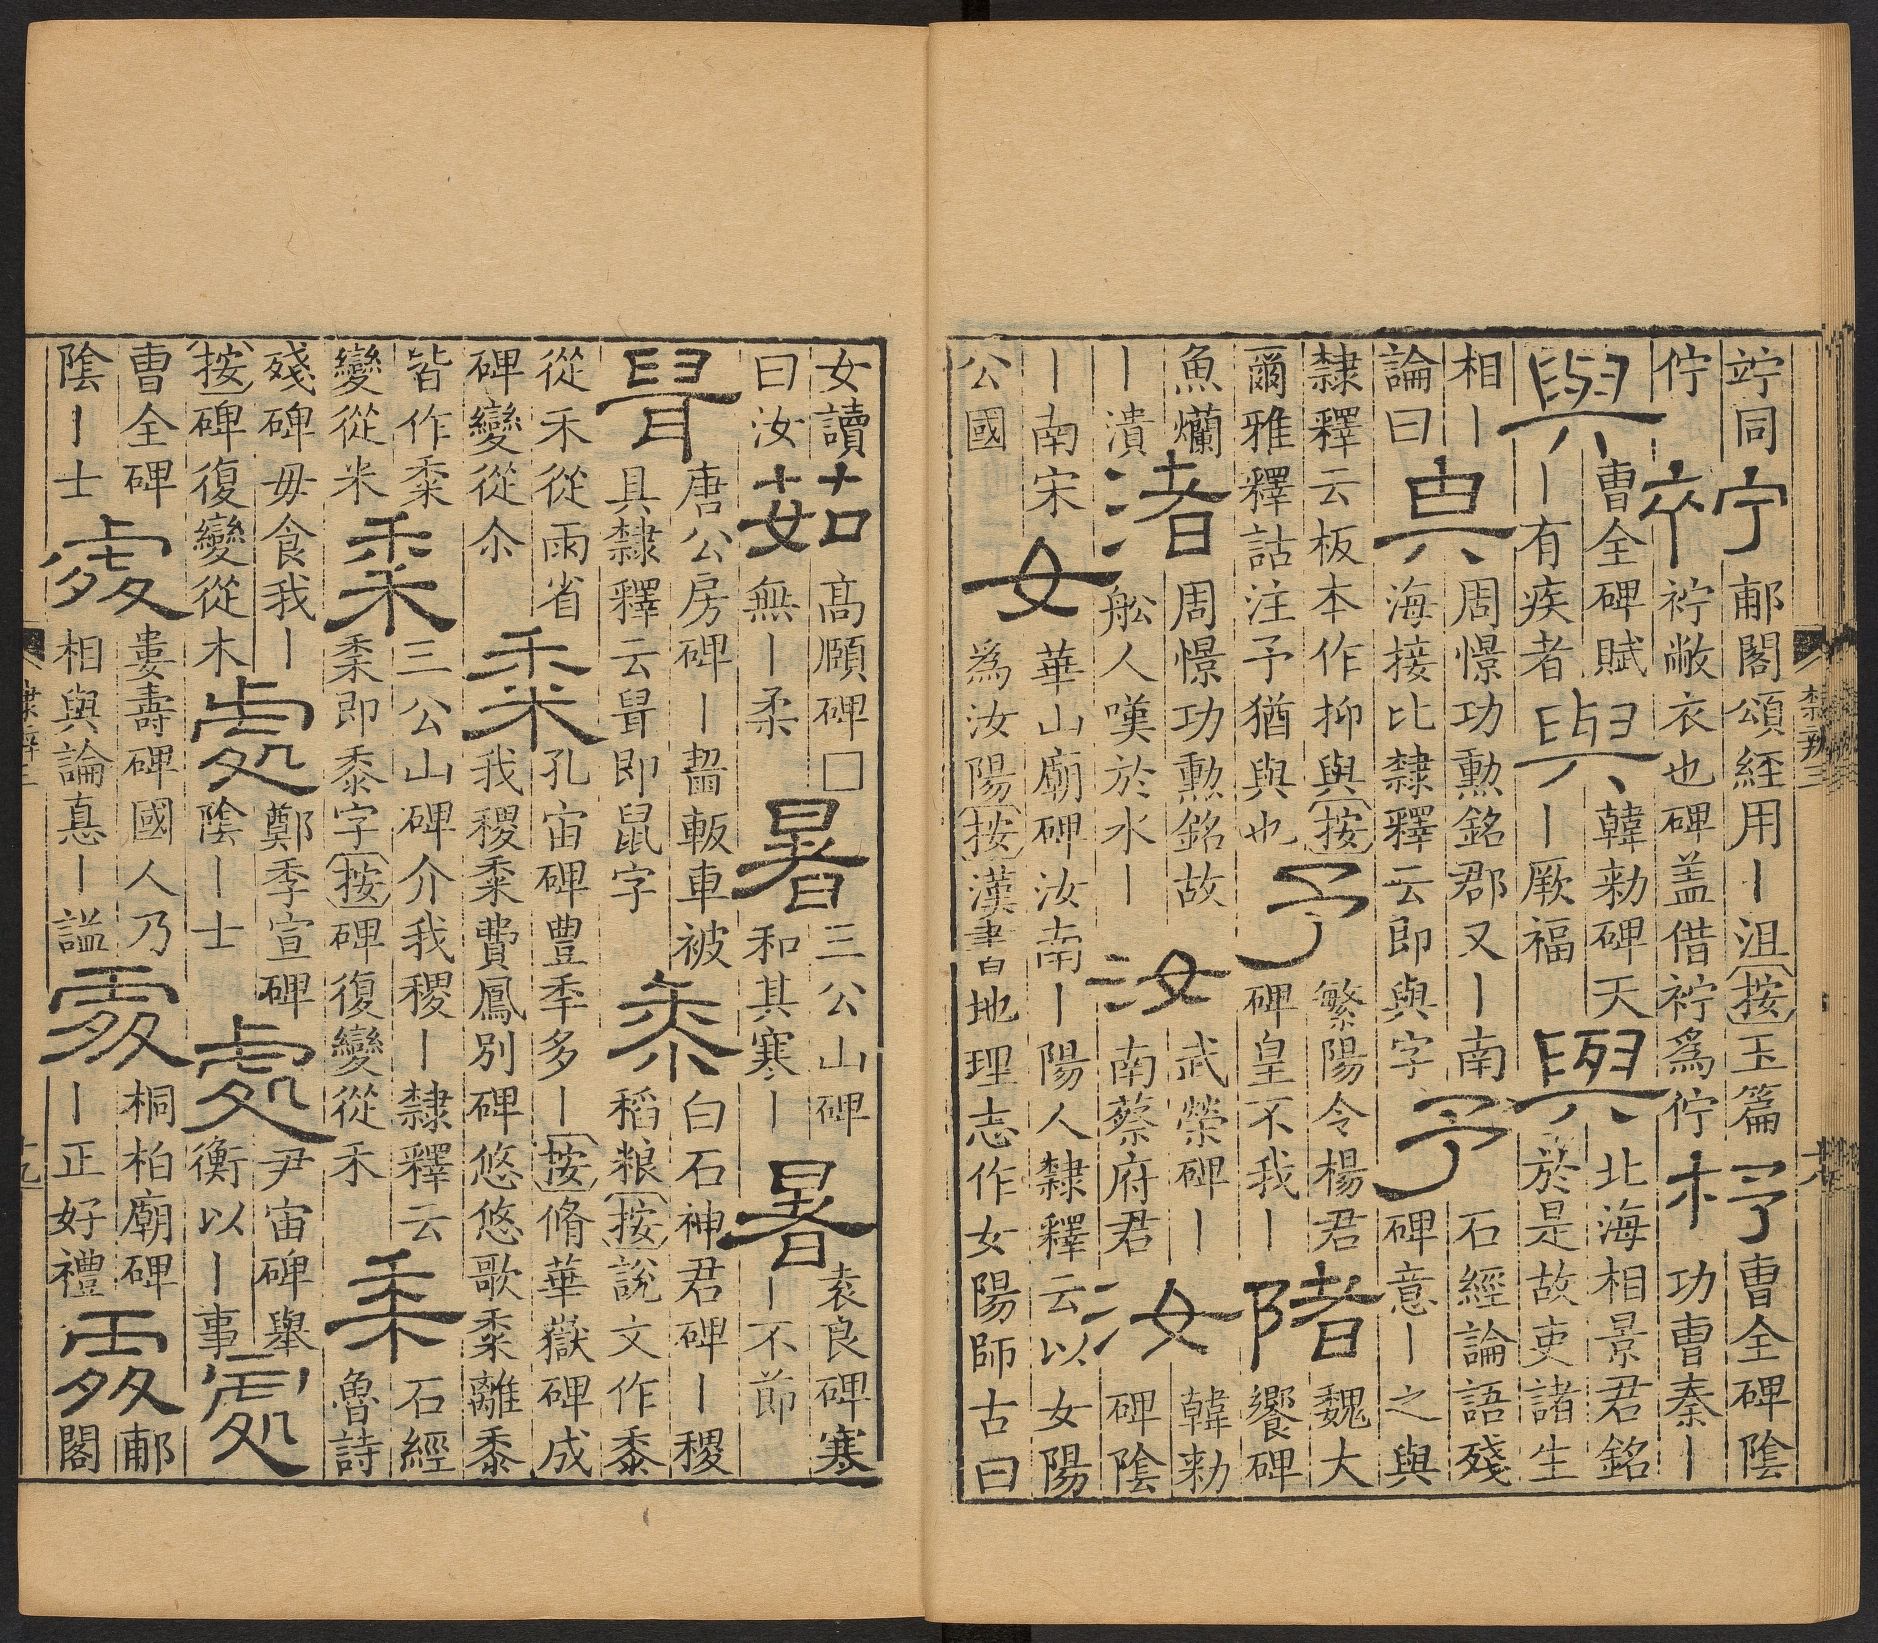 竚同佇 ⿰衤宁 郙閣頌經用丨沮按玉篇⿰衤宁敝衣也碑蓋借⿰衤宁爲佇 杼 曹全碑陰功曹秦丨
與 曹全碑賦丨有疾者 與 韓勑碑天丨厥福 與 北海相景君銘於是故吏諸生
相丨論曰 㒷 周憬功勳銘郡又丨南海接比隸釋云即與字 予 石經論語殘碑意丨之與
隸釋云板本作抑與按爾雅釋詁注予猶與也 予 繁陽令楊君碑皇不我丨 陼 魏大饗碑
魚爛丨潰 渚 周憬功勳銘故舩人嘆於水丨 汝 武榮碑丨南蔡府君 汝 韓勑碑陰
丨南宋公國 女 華山廟碑汝南丨陽人隸釋云以女陽爲汝陽按漢書地理志作女陽師古曰
隸辨三
女讀曰汝 茹 高頤碑□無丨柔 暑 三公山碑和其寒丨 暑 袁良碑寒丨不節
鼠 唐公房碑丨齧車被具隸釋云即鼠字 黍 白石神君碑丨稷稻粮按說文作黍
從禾從雨省碑變從氽 黍 孔宙碑豐年多丨按脩華嶽碑成我稷黍費鳳別碑悠悠歌黍離黍
皆作黍變從米 黍 三公山碑介我稷丨隸釋云黍即黍字按碑復變從禾 黍 石經魯詩
殘碑毋食我丨按碑復變從木 處 鄭季宣碑陰丨士 處 尹宙碑舉衡以丨事 處
曹全碑陰丨士 處 婁壽碑國人乃相與論悳丨謚 處 桐柏廟碑丨正好禮 處 郙閣